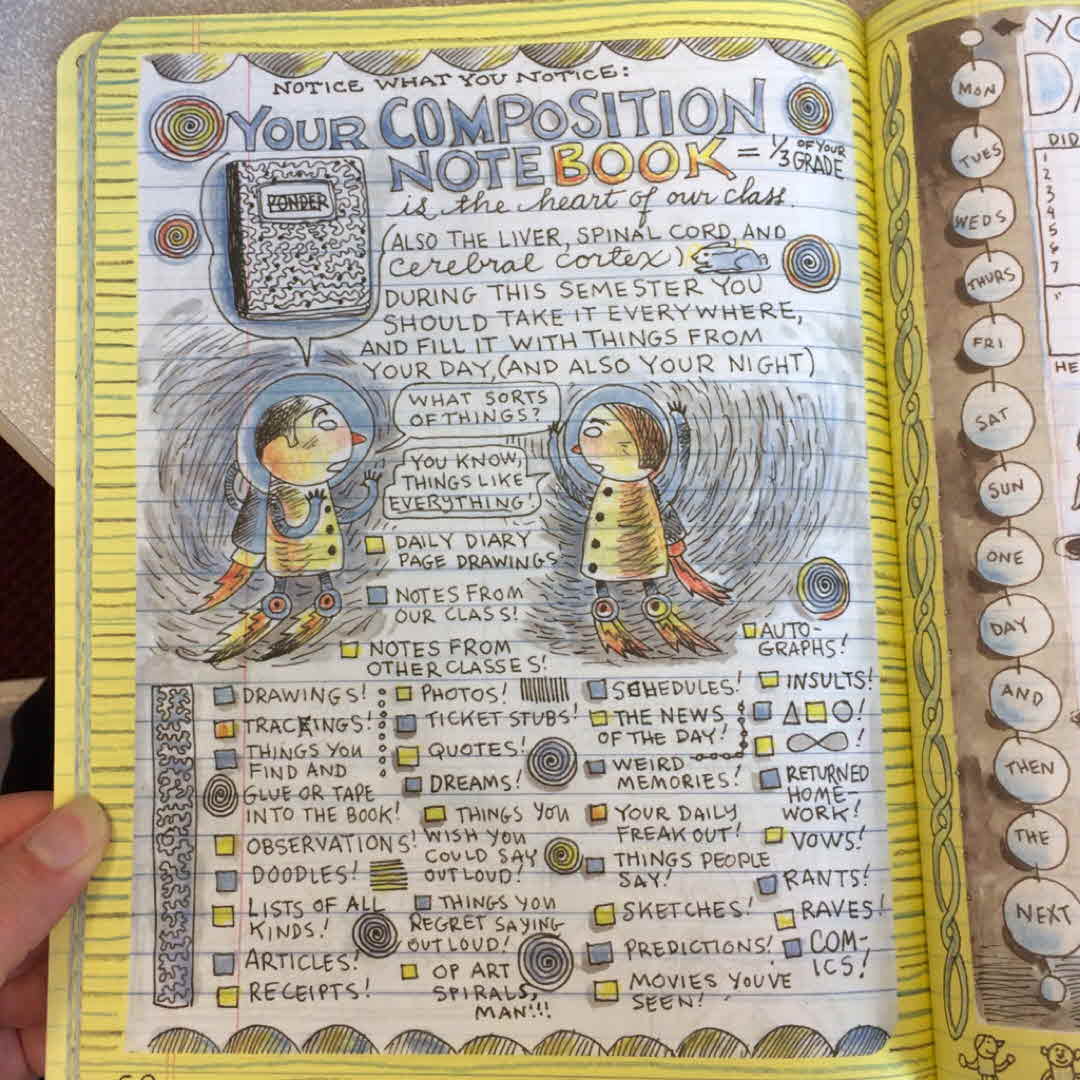 NOTICE WHAT YOU NOTICE:
YOUR COMPOSITION
NOTEBOOK = 1/3 OF YOUR GRADE
PONDER
is the heart of our class.
(ALSO THE LIVER, SPINAL CORD, AND
cerebral cortex)
DURING THIS SEMESTER YOU
SHOULD TAKE IT EVERYWHERE,
AND FILL IT WITH THINGS FROM
YOUR DAY, (AND ALSO YOUR NIGHT)
WHAT SORTS
OF THINGS?
YOU KNOW,
THINGS LIKE
EVERYTHING!
DAILY DIARY
PAGE DRAWINGS
NOTES FROM
OUR CLASS!
NOTES FROM
OTHER CLASSES!
DRAWINGS!
TRACKINGS!
THINGS YOU
FIND AND
GLUE OR TAPE
INTO THE BOOK!
OBSERVATIONS!
DOODLES!
LISTS OF ALL
KINDS!
ARTICLES!
RECEIPTS!
PHOTOS!
TICKET STUBS!
QUOTES!
DREAMS!
THINGS YOU
WISH YOU
COULD SAY
OUT LOUD!
THINGS YOU
REGRET SAYING
OUT LOUD!
OP ART
SPIRALS,
MAN!!!
SCHEDULES!
THE NEWS
OF THE DAY!
WEIRD
MEMORIES!
YOUR DAILY
FREAK OUT!
THINGS PEOPLE
SAY!
SKETCHES!
PREDICTIONS!
MOVIES YOU'VE
SEEN!
AUTO-
GRAPHS!
INSULTS!
△□○!
∞!
RETURNED
HOME-
WORK!
VOWS!
RANTS!
RAVES!
COM-
ICS!
MON
TUES
WEDS
THURS
FRI
SAT
SUN
ONE
DAY
AND
THEN
THE
NEXT
YO
DA
DID
1
2
3
4
5
6
7
HE